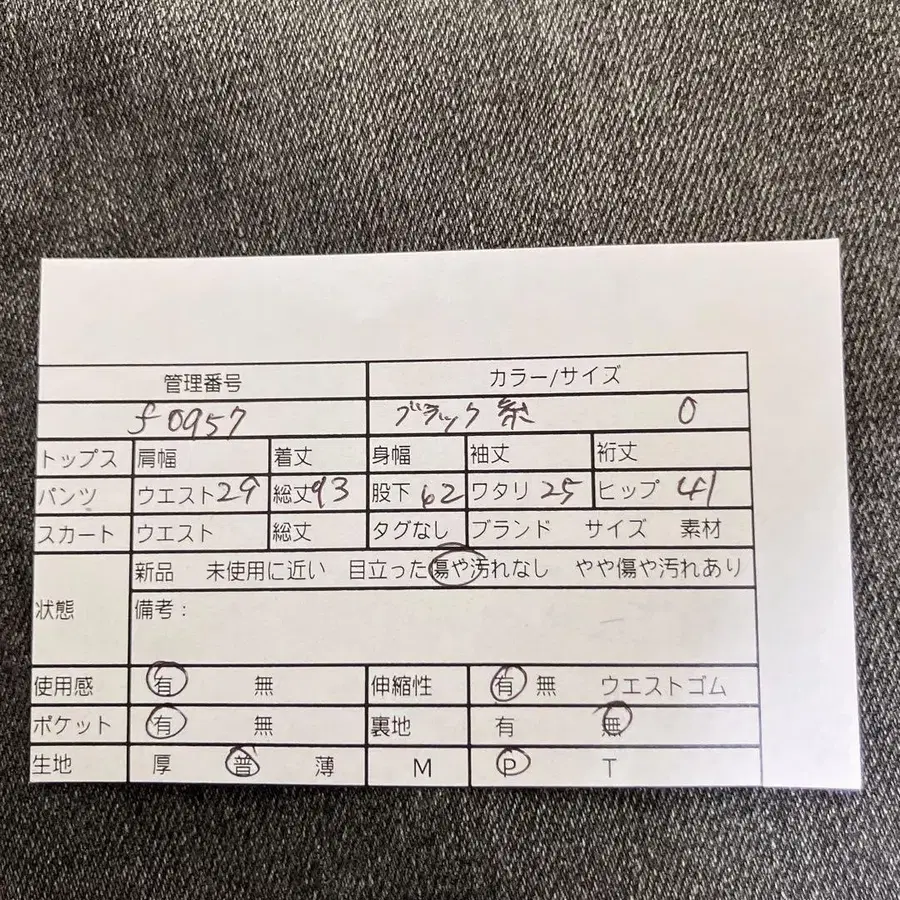 管理番号 カラー/サイズ
f0957 ブラック系 0
トップス 肩幅 着丈 身幅 袖丈 裄丈
パンツ ウエスト29 総丈93 股下62 ワタリ25 ヒップ41
スカート ウエスト 総丈 タグなし ブランド サイズ 素材
新品 未使用に近い 目立った傷や汚れなし やや傷や汚れあり
状態 備考:
使用感 有 無 伸縮性 有 無 ウエストゴム
ポケット 有 無 裏地 有 無
生地 厚 普 薄 M P T